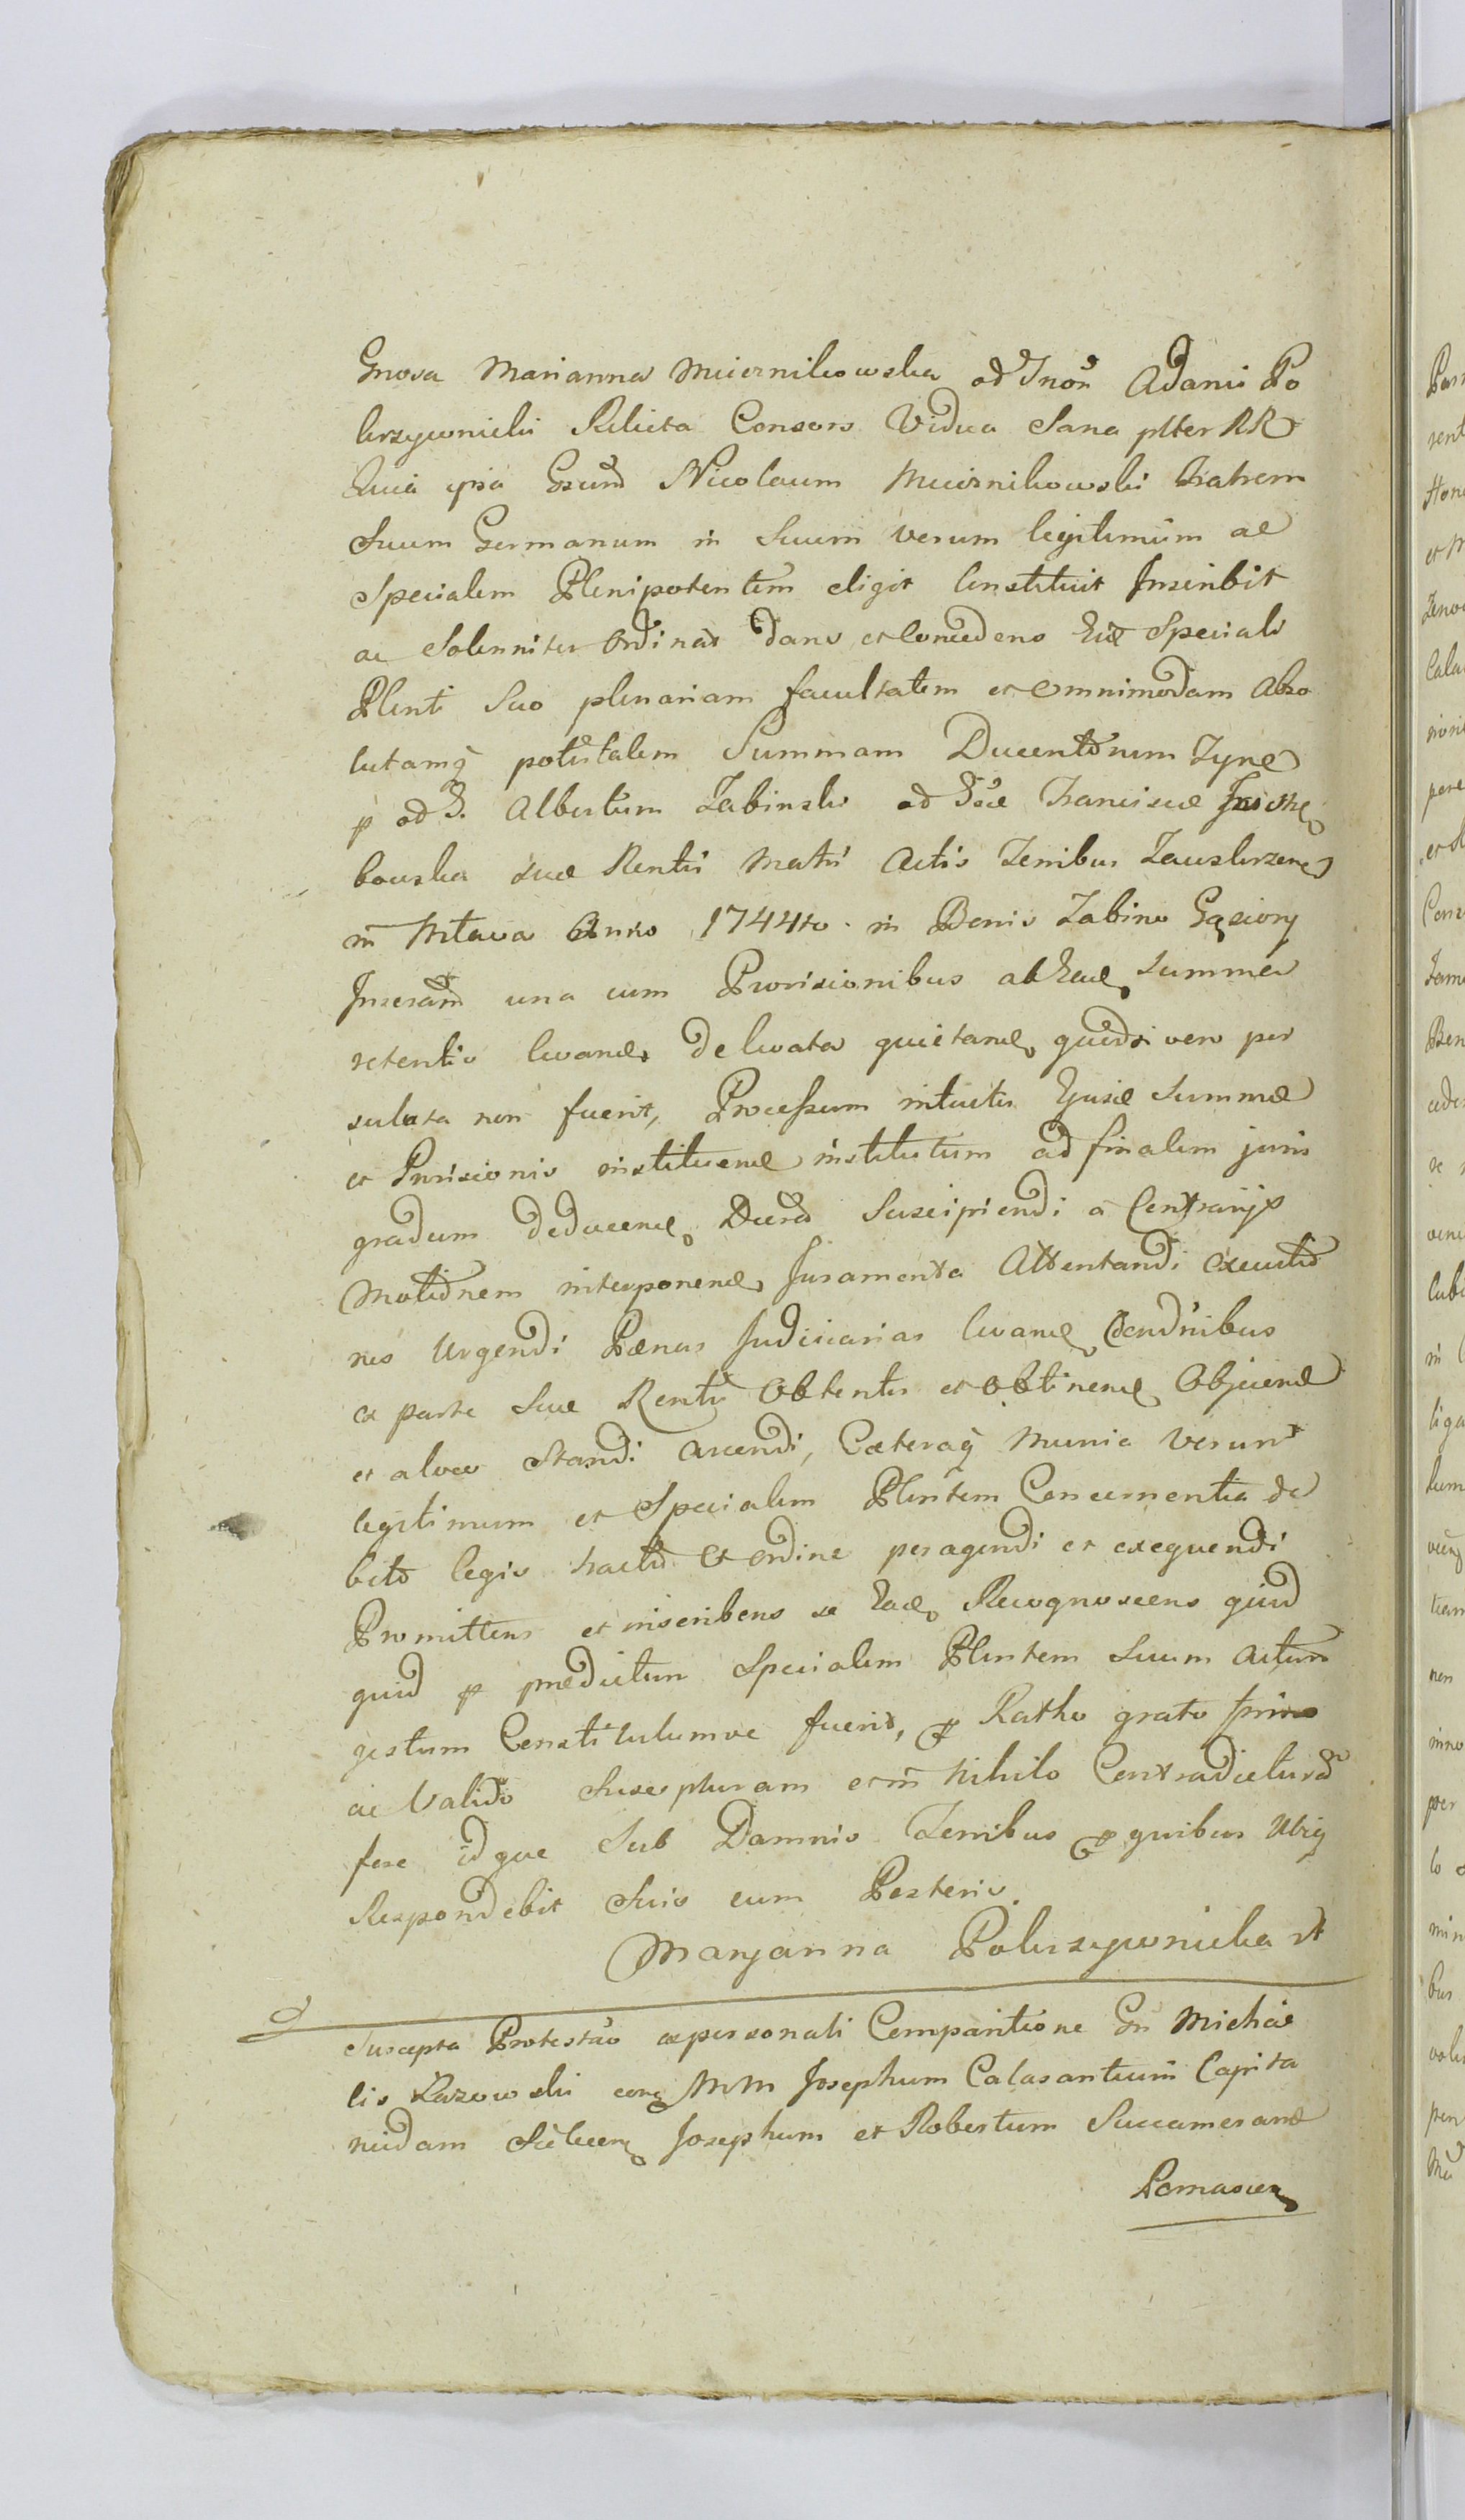 Gnosa Marianna Miernikowska od Gnōn Adami Po
krzywnicki Relicta Consors Vidua Sana plter RR
Quia ipsa Gsum Nicolaum Miernikowski Fratrem
Suum Germanum in Suum verum legitimum ac
Specialem Plenipotentem eligit Constituit Inscribit
ac Solenniter Ordinat dans et concedens Eid Speciali
Plenti Suo plenariam facultatem et omnimodam Abso
lutamq potestatem Summam Ducentorum
p od G. Albertum Zabinski od Franciscæ
bowska suæ Rentis Matri Actis Terribus Zawskrzene
in Mlava Anno 1744to in Bonis Zabino Gąsiory
Inscram una cum Provisionibus ab Eade Summa
retentis levand de levata quietand quodsi vero per
soluta non fuerit, Processum intuitu Ejusd Summæ
et Provisionis instituend institutum ad finalem juris
gradum deducend Decreta Suscipiendi a Contrarijs
Motionem interponend Juramenta Attentandi Executio
nes Urgendi Pænas Judiciarias levand Condnibus
ex parte Suæ Rentis Obtentis et obtinend Objiciend
et alveo Standi arcendi, Cæteraq Munia Verum
legitimum et Specialem Plentem Concernentia de
bito legis tractu Et ordine peragendi et exequendi
Promittens et inscribens se Eade Recognoscens quid
quid p prædictum Specialem Plentem Suum Actum
gestum Constitutumve fuerit, p Ratho grato firmo
ac Valido Suscepturam etin Nihilo Contradicturā
fore idque Sub Damnis Terribus p quibus Ubiq
Respondebit Suis cum Posteris.
Maryanna Pokrzywnicka
Suscepta Protestāo ex personali Comparitione Gn Michae
lis Łazowski corq MM Josephum Calasantium Capita
neidam Josephum et Robertum Succamerand